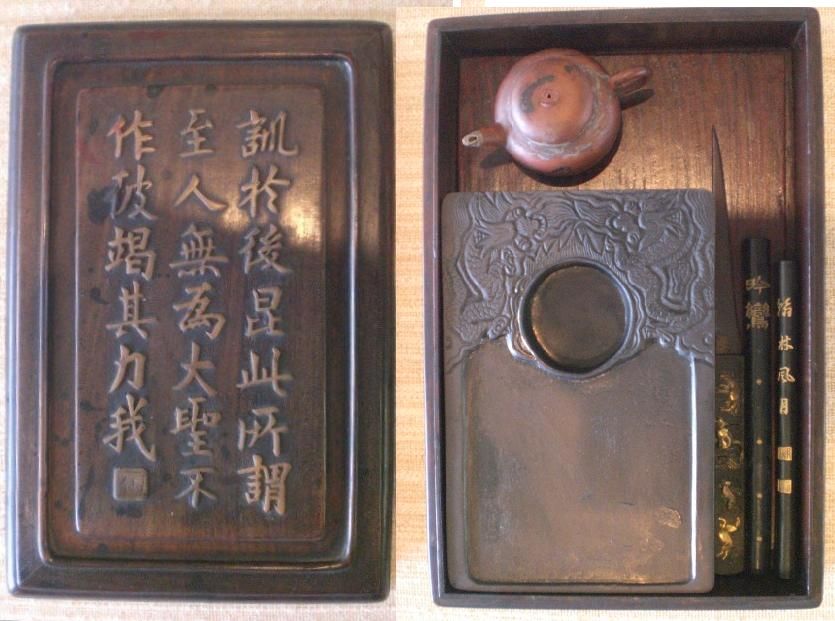 訓於後昆此所謂
至人無為大聖不
作彼竭其力我
吟
翰林風月